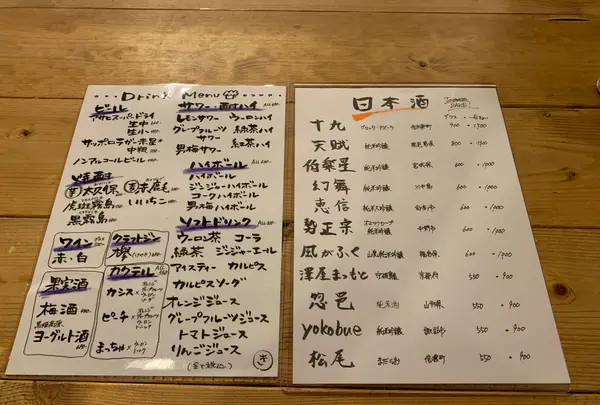 Drink Menu
ビール
生中
生小
サッポロラガー赤星
中瓶
ノンアルコールビール
焼酎
大久保
虎斑霧島
いいちこ
黒霧島
ワイン
赤・白
クラフトジン
欅
果実酒
梅酒
ヨーグルト酒
カクテル
カシス
ピーチ
まっちゃ
サワー・酎ハイ
レモンサワー ウーロンハイ
グレープフルーツサワー 緑茶ハイ
男梅サワー 紅茶ハイ
ハイボール
ハイボール
ジンジャーハイボール
コークハイボール
男梅ハイボール
ソフトドリンク
ウーロン茶 コーラ
緑茶 ジンジャーエール
アイスティー カルピス
カルピスソーダ
オレンジジュース
グレープフルーツジュース
トマトジュース
りんごジュース
き
日本酒
JAPANESE SAKE!
十九 信濃町 900・1500
天賦 純米吟醸 鹿児島県 800・1300
伯楽星 純米吟醸 宮城県 600・1000
幻舞 純米吟醸 川中島 600・1000
恵信 純米吟醸 600・1000
勢正宗 純米吟醸 中野市 600・1000
凪がふく 山廃純米吟醸 福島県 600・1000
澤屋まつもと 守破離 京都府 550・900
惣邑 純米酒 山形県 550・900
yokobue 純米吟醸 諏訪市 550・900
松尾 信濃町 550・900